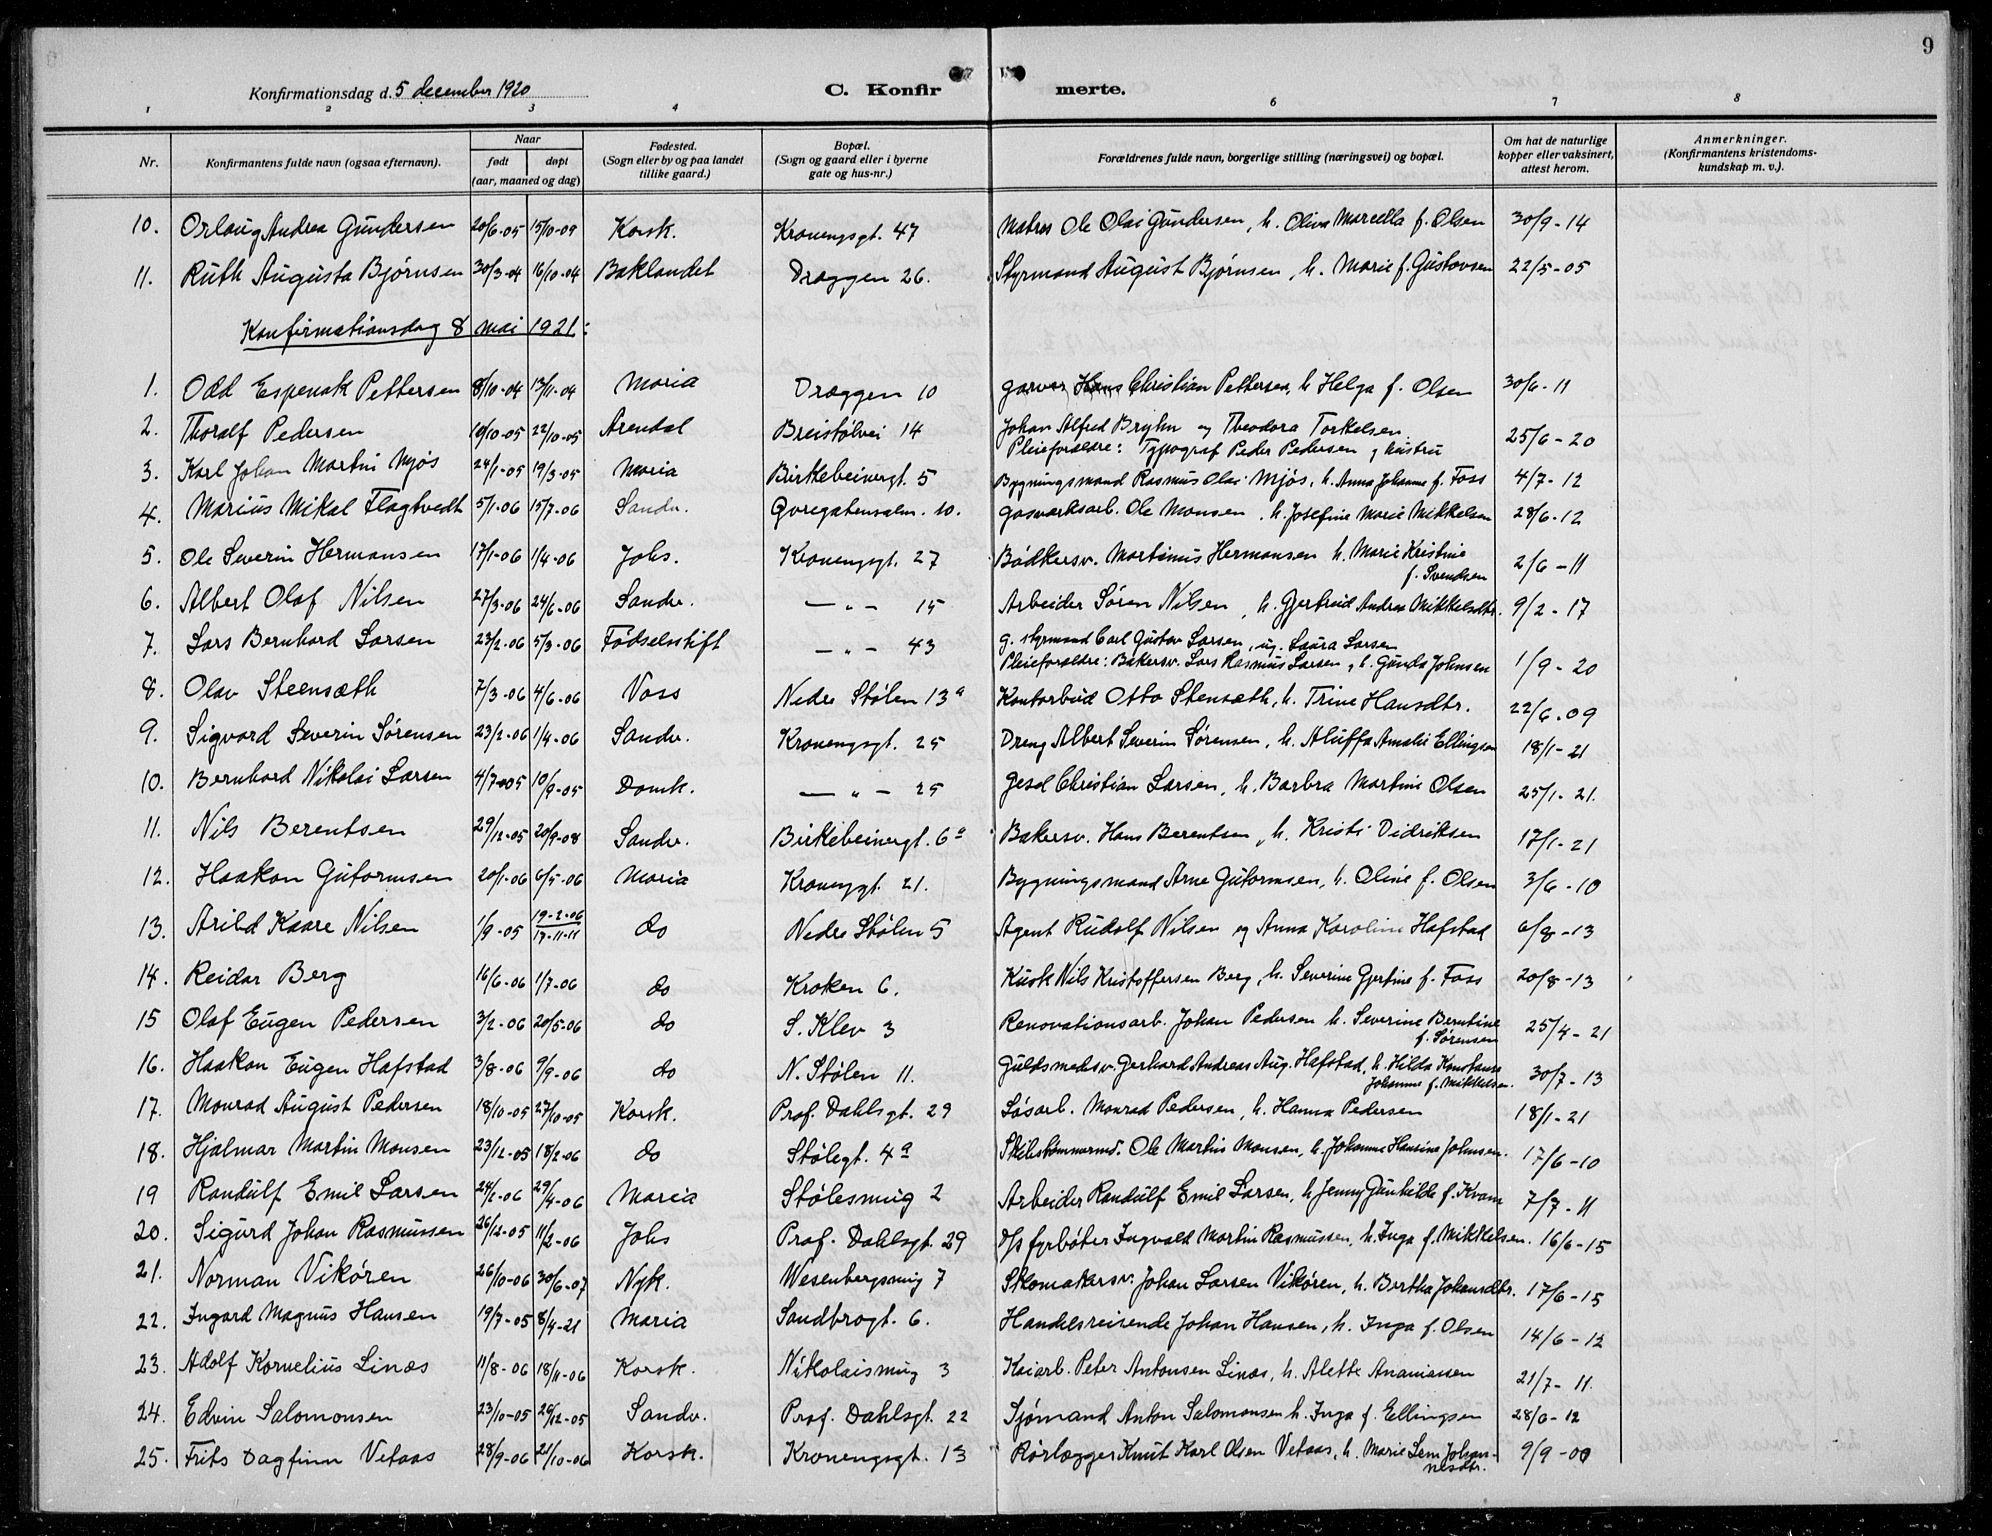 9
Konfirmationsdag d. 5 december 1920 C. Konfirmerte.
1 2 3 4 6 7 8
Nr. Konfirmantens fulde navn (ogsaa efternavn). Naar født døpt (aar, maaned og dag) Fødested. (Sogn eller by og paa landet tillike gaard.) Bopæl. (Sogn og gaard eller i byerne gate og hus-nr.) Forældrenes fulde navn, borgerlige stilling (næringsvei) og bopæl. Om hat de naturlige kopper eller vaksinert, attest herom. Anmerkninger. (Konfirmantens kristendomskundskap m. v.).
10. Orlaug Andrea Gundersen 20/6-05 15/10-09 Korsk. Kronengsgt. 47 Matros Ole Olai Gundersen, h. Oliva Marcella f. Olsen 30/9-14
11. Ruth Augusta Bjørnsen 30/3-04 16/10-04 Baklandet Dræggen 26. Styrmand August Bjørnsen, h. Marie f. Gustovsen 22/5-05
Konfirmationsdag 8 mai 1921:
1. Odd Espenak Pettersen 8/10-04 13/11-04 Maria Dræggen 10 garver Hans Christian Pettersen, h Helga f. Olsen 30/6-11
2. Thoralf Pedersen 10/10-05 22/10-05 Arendal Breistølvei 14 Johan Alfred Bryhn og Theodora Torkelsen
Pleieforældre: Typograf Peder Pedersen og hustru 25/6-20
3. Karl Johan Martin Mjøs 24/1-05 19/3-05 Maria Birkebeinergt. 5 Bygningsmand Rasmus Olai Mjøs, h. Anna Johanne f. Foss 4/7-12
4. Marius Mikal Flagtvedt 5/1-06 15/7-06 Sandv. Øvregatensalm. 10. gasverksarb. Ole Monsen, h. Josefine Marie Mikkelsen 28/6-12
5. Ole Severin Hermansen 17/1-06 1/4-06 Johs. Kronengsgt. 27 Bødkersv. Martinus Hermansen h. Marie Kristine
f. Svendsen 2/6-11
6. Albert Olaf Nilsen 27/3-06 24/6-06 Sandv. — " — 15 Arbeider Søren Nilsen, h. Gjertrud Andrea Mikkelsdtr. 9/2-17
7. Lars Bernhard Larsen 23/2-06 5/3-06 Fødselsstift — " — 43 g. styrmand Carl Gustav Larsen, ug. Laura Larsen
Pleieforældre: Bakersv. Lars Rasmus Larsen, h. Gunda Johnsen 1/9-20
8. Olav Steensæth 7/3-06 4/6-06 Voss Nedre Stølen 13a Kontorbud Otto Stensæth, h. Trine Hansdtr. 22/6-09
9. Sigvard Severin Sørensen 23/2-06 1/4-06 Sandv. Kronengsgt. 25 Dreng Albert Severin Sørensen, h. Aluffa Amalie Ellingsen 18/1-21
10. Bernhard Nikolai Larsen 4/7-05 10/9-05 Domk. — " — 25 gesel Christian Larsen, h. Barbra Martine Olsen 25/1-21.
11. Nils Berentsen 29/12-05 20/9-08 Sandv. Birkebeinergt. 6a Bakersv. Hans Berentsen, h. Kristi Didriksen 17/1-21
12. Haakon Gutormsen 20/1-06 6/5-06 Maria Kronengt. 21. Bygningsmand Arne Gutormsen, h. Oline f. Olsen 3/6-10
13. Arild Kaare Nilsen 1/9-05 19-2-06 17-11-11 do Nedre Stølen 5 Agent Rudolf Nilsen og Anna Karoline Hafstad 6/8-13
14. Reidar Berg 16/6-06 1/7-06 do Kroken 6. Kusk Nils Kristoffersen Berg, h. Severine Gjertine f. Foss 20/8-13
15 Olaf Eugen Pedersen 3/2-06 20/5-06 do S. Klev 3 Renovationsarb. Johan Pedersen h. Severine Berntine
f. Sørensen 25/4-21
16. Haakon Eugen Hafstad 3/8-06 9/9-06 do N. Stølen 11. Guldsmedsv. Gerhard Andreas Aug. Hafstad, h. Hilda Konstanse
Johanne f. Mikkelsen. 30/7-13
17. Monrad August Pedersen 18/10-05 27/10-05 Korsk. Prof. Dahlsgt. 29 Løsarb. Monrad Pedersen, h. Hanna Pedersen 18/1-21
18. Hjalmar Martin Monsen 23/12-05 18/2-06 do Stølegt. 4a Skibstømmermd. Ole Martin Monsen, h. Johanne Hansine Johnsen. 17/6-10
19 Randulf Emil Larsen 24/1-06 29/4-06 Maria Stølesmug 2 Arbeider Randulf Emil Larsen, h Jenny Gunhilde f. Kvam 7/7-11
20. Sigurd Johan Rasmussen 26/12-05 11/2-06 Johs Prof. Dahlsgt. 29 D/s fyrbøter Ingvald Martin Rasmussen, h. Inga f. Mikkelsen. 16/6-15
21. Norman Vikøren 26/10-06 30/6-07 Nyk. Wesenbergsmug 7 Skomakersv. Johan Larsen Vikøren, h. Bertha Johansdtr. 17/6-15
22. Ingard Magnus Hansen 19/7-05 8/4-21 Maria Sandbrogt. 6. Handelsreisende Johan Hansen, h. Inga f. Olsen 14/6-12
23. Adolf Kornelius Linæs 11/8-06 18/11-06 Korsk. Nikolaismug 3 Kaiarb. Peter Antonsen Linæs, h. Alette Ananiassen 21/7-11.
24. Edvin Salomonsen 23/10-05 26/12-05 Sandv. Prof. Dahlsgt. 22 Sjømand Anton Salomonsen h. Inga f. Ellingsen 28/6-12
25. Frits Dagfinn Vetaas 28/9-06 21/10-06 Korsk. Kronengsgt. 13 Rørlægger Knut Karl Olsen Vetaas, h. Marie Lena Johan-
nesdtr. 9/9-00